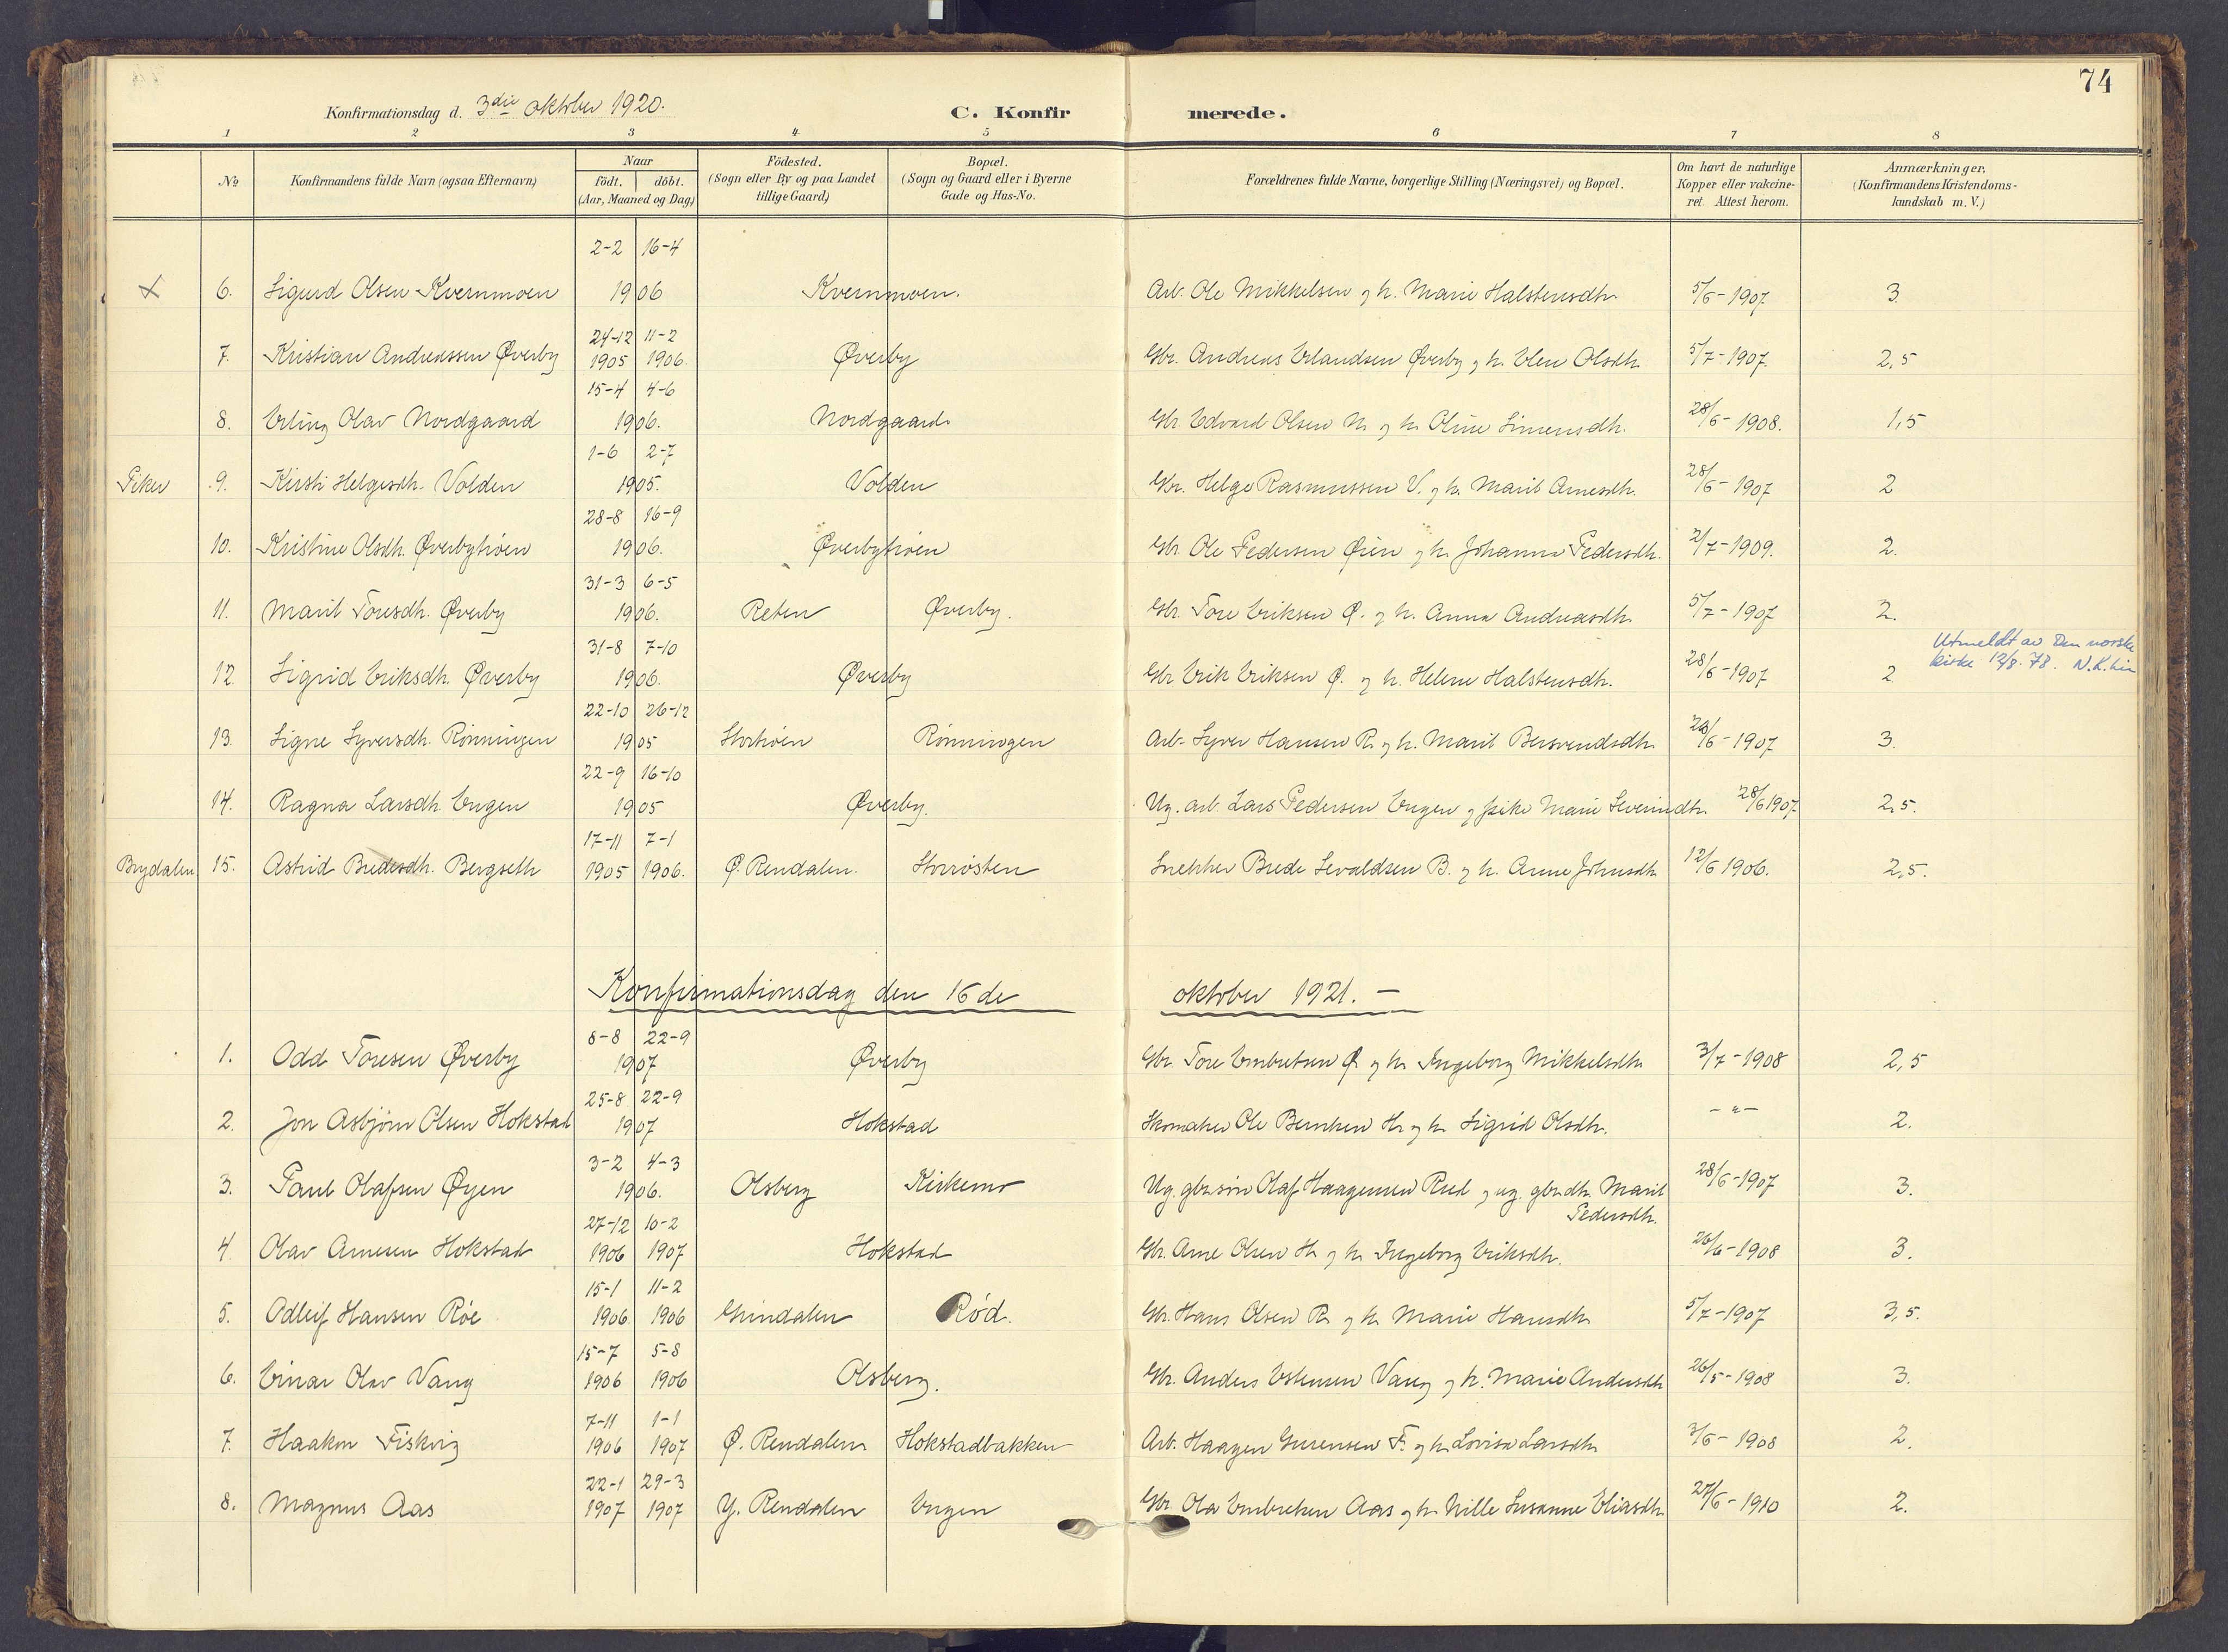 74
Konfirmationsdag d. 3die oktober 1920. C. Konfirmerede.
1 2 3 4 5 6 7 8
No Konfirmandens fulde Navn (ogsaa Efternavn) Naar födt. döbt. (Aar, Maaned og Dag) Födested. (Sogn eller By og paa Landet tillige Gaard) Bopæl. (Sogn og Gaard eller i Byerne Gade og Hus-No. Forældrenes fulde Navne, borgerlige Stilling (Næringsvei) og Bopæl. Om havt de naturlige Kopper eller vakcineret. Attest herom. Anmærkninger, (Konfirmandens Kristendomskundskab m.V.)
2-2 16-4
x 6. Sigurd Olsen Kvernmoen 1906 Kvernmoen. Arb. Ole Mikkelsen og h. Marie Halstensdtr. 5/6-1907 3
24-12 11-2
7. Kristian Andreassen Øverby 1905 1906. Øverby Gbr. Andreas Erlandsen Øverby og h. Elen Olsdtr. 5/7-1907. 2,5
15-4 4-6
8. Erling Olav Nordgaard 1906. Nordgaard Gbr. Edvard Olsen N. og h. Oline Simensdtr. 28/6-1908. 1,5
1-6 2-7
Piker 9. Kirsti Helgesdtr. Volden 1905. Volden Gbr. Helge Rasmussen V. og h. Marit Arnesdtr. 28/6-1907 2
28-8 16-9
10. Kristine Olsdtr. Øverbytrøen 1906. Øverbytrøen Gbr. Ole Pedersen Øien og h. Johanna Pedersdtr. 2/7-1909. 2.
31-3 6-5
11. Marit Toresdtr. Øverby 1906. Reten Øverby. Gbr. Tore Eriksen Ø. og h. Anna Andreasdtr. 5/7-1907 2.
31-8 7-10
12. Sigrid Eriksdtr. Øverby 1906. Øverby Gbr Erik Eriksen Ø. og h. Helene Halstensdtr. 28/6-1907 2 Utmeldt av Den norske kirke 12/8.78. N.K.Lie
22-10 26-12
13. Signe Syversdtr. Rønningen 1905 Stortrøen Rønningen Arb. Syver Hansen R. og h. Marit Bersvendsdtr. 28/6-1907 3.
22-9 16-10
14. Ragna Larsdtr. Engen 1905 Øverby. Ug. arb. Lars Pedersen Engen og pike Marie Severinsdtr. 28/6 1907 2,5.
17-11 7-1
Brydalen 15. Astrid Bredesdtr. Bergseth 1905 1906. Ø. Rendalen. Storrøsten Snekker Brede Sevaldsen B. og h. Anne Johnsdtr. 12/6 1906. 2,5.
Konfirmationsdag den 16de oktober 1921. -
8-8 22-9
1. Odd Toresen Øverby 1907 Øverby Gbr. Tore Embretsen Ø. og h. Ingeborg Mikkelsdtr. 3/7-1908 2,5
25-8 22-9
2. Jon Asbjørn Olsen Hokstad 1907 Hokstad Skomaker Ole H. og h. Sigrid Olsdtr. -"- 2.
3-2 4-3
3. Paul Olafsen Øyen 1906. Olsberg Kirkemo Ug. gbr.søn Olaf Haagensen Rud og ug. gbr.dtr. Marit Pedersdtr. 28/6-1907 3.
27-12 10-2
4. Olav Arnesen Hokstad 1906 1907 Hokstad Gbr. Arne Olsen H. og h. Ingeborg Eriksdtr. 26/6-1908 3.
15-1 11-2
5. Odleif Hansen Røe 1906. 1906 Grindalen Rød. Gbr. Hans Olsen R. og h. Marie Hansdtr. 5/7-1907 3,5.
15-7 5-8
6. Einar Olav Vang 1906 1906 Olsberg. Gbr. Anders Estensen Vang og h. Marie Andersdtr. 26/5-1908 3.
7-11 1-1
7. Haakon Fiskvig 1906 1907 Ø. Rendalen Hokstadbakken Arb. Haagen F. og h. Lovisa Larsdtr. 3/6-1908 2.
22-1 29-3
8. Magnus Aas 1907 1907 Y. Rendalen Engen Gbr. Ola Embretsen Aas og h. Nille Susanne Eliasdtr. 27/6-1910 2.